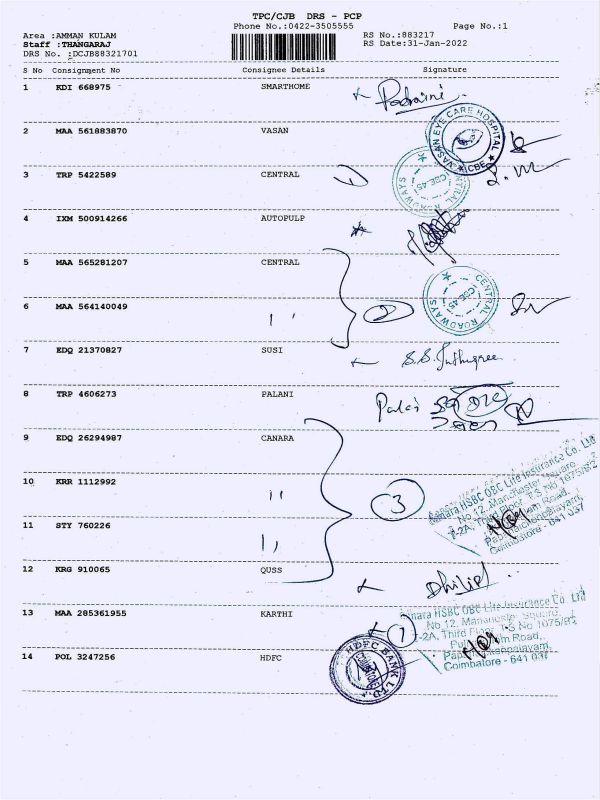 TPC/CJB DRS - PCP
Phone No.:0422-3505555 Page No.:1
Area :AMMAN KULAM RS No.:883217
Staff :THANGARAJ RS Date:31-Jan-2022
DRS No. :DCJB88321701
S No Consignment No Consignee Details Signature
1 KDI 668975 SMARTHOME
2 MAA 561883870 VASAN
VASAN EYE CARE HOSPITAL CBE
3 TRP 5422589 CENTRAL 1
CENTRAL ROADWAYS CBE 45
4 IXM 500914266 AUTOPULP
5 MAA 565281207 CENTRAL
6 MAA 564140049 2
CENTRAL ROADWAYS CBE 45
7 EDQ 21370827 SUSI
8 TRP 4606273 PALANI
9 EDQ 26294987 CANARA
10 KRR 1112992 3
Canara HSBC OBC Life Insurance Co. Ltd
No 12, Manchester Square
7-2A, Third Floor, T.S No 1075/82
Road,
Coimbatore - 641 037
11 STY 760226
12 KRG 910065 QUSS
13 MAA 285361955 KARTHI 1
Canara HSBC OBC Life Insurance Co. Ltd
No 12, Manchester Square
-2A, Third Floor, T.S No 1075/82
Road,
Coimbatore - 641 037
14 POL 3247256 HDFC
HDFC BANK LTD.